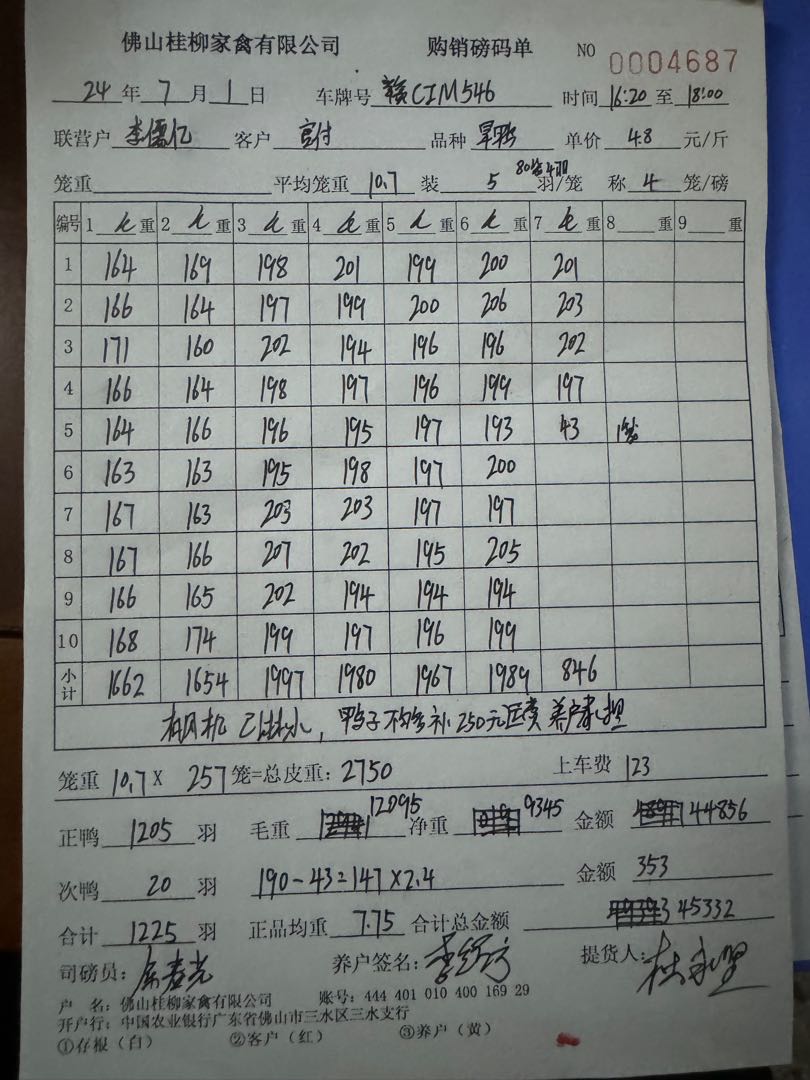 佛山桂柳家禽有限公司 购销磅码单 NO 0004687
24 年 7 月 1 日 车牌号 赣CIM546 时间 16:20 至 18:00
联营户 李儒亿 客户 宫付 品种 旱鸭 单价 4.8 元/斤
笼重 平均笼重 10.7 装 5 80笼4羽 羽/笼 称 4 笼/磅
编号 1 重 2 重 3 重 4 重 5 重 6 重 7 重 8 重 9 重
1 164 169 198 201 199 200 201
2 166 164 197 199 200 206 203
3 171 160 202 194 196 196 202
4 166 164 198 197 196 199 197
5 164 166 196 195 197 193 43 1笼
6 163 163 195 198 197 200
7 167 163 203 203 197 197
8 167 166 207 202 195 205
9 166 165 202 194 194 194
10 168 174 199 197 196 199
小计 1662 1654 1997 1980 1967 1989 846
已淋水，鸭子不够补250元运费 养户承担
笼重 10.7 X 257 笼=总皮重：2750 上车费 123
正鸭 1205 羽 毛重 12095 净重 9345 金额 44856
次鸭 20 羽 190-43=147×2.4 金额 353
合计 1225 羽 正品均重 7.75 合计总金额 45332
司磅员： 养户签名： 提货人：
户 名：佛山桂柳家禽有限公司 账号：444 401 010 400 169 29
开户行：中国农业银行广东省佛山市三水区三水支行
①存根（白） ②客户（红） ③养户（黄）